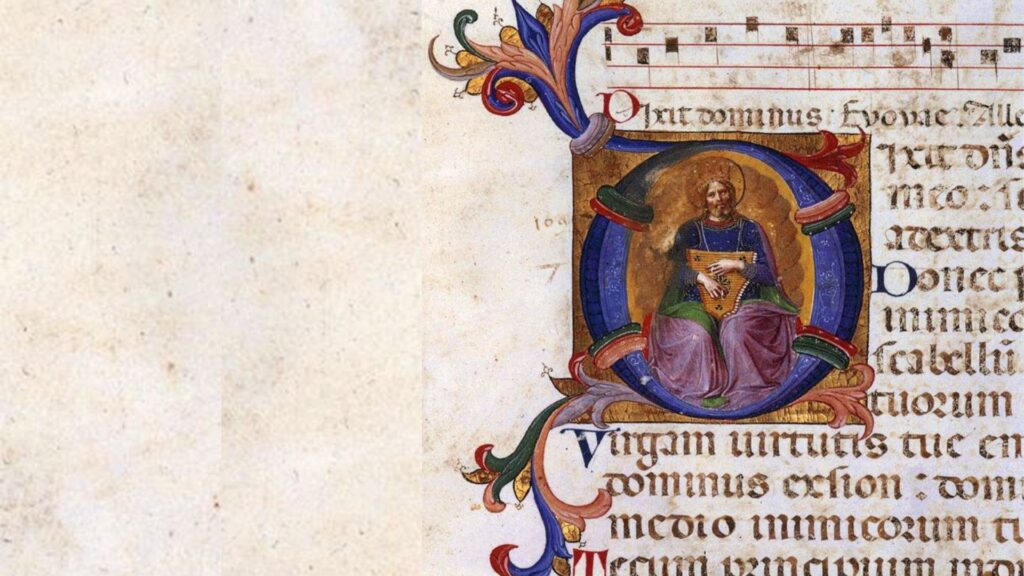 Dixit dominus Evovae Alle
Dixit dn̄s
meo : se
a dextris
Donec p
inimico
scabellū
tuorum
Virgam uirtutis tue em
dominus ex sion : domi
medio inimicorum tu
Tecum principium in di